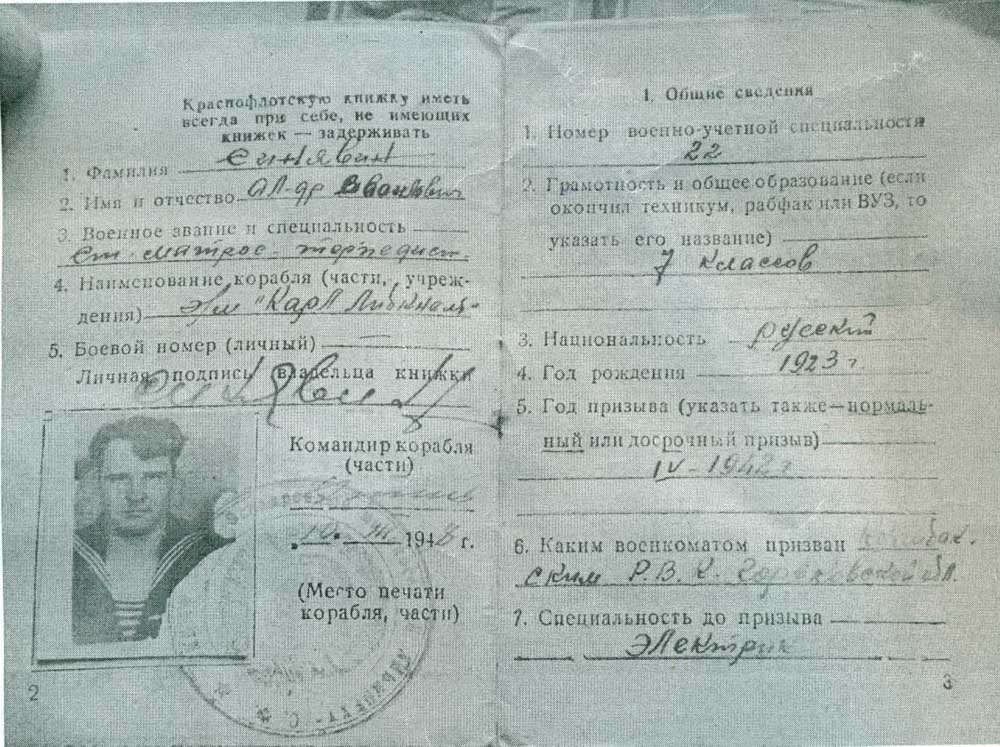 Краснофлотскую книжку иметь
всегда при себе, не имеющих
книжек — задерживать
1. Фамилия Синявин
2. Имя и отчество Ал-др Иванович
3. Военное звание и специальность
Ст. матрос - торпедист.
4. Наименование корабля (части, учреж-
дения) э/м "Карл Либкнехт"
5. Боевой номер (личный) —
Личная подпись владельца книжки
Командир корабля
(части)
„10" 1948 г.
(Место печати
корабля, части)
2
1. Общие сведения
1. Номер военно-учетной специальности
22
2. Грамотность и общее образование (если
окончил техникум, рабфак или ВУЗ, то
указать его название)
7 классов
3. Национальность русский
4. Год рождения 1923 г.
5. Год призыва (указать также—нормаль-
ный или досрочный призыв)
IV - 1942 г
6. Каким военкоматом призван
ским Р.В.К. Горьковской обл.
7. Специальность до призыва
Электрик
3